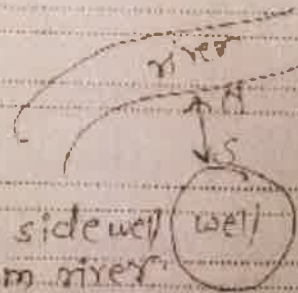 river
A
S
side well well
m river